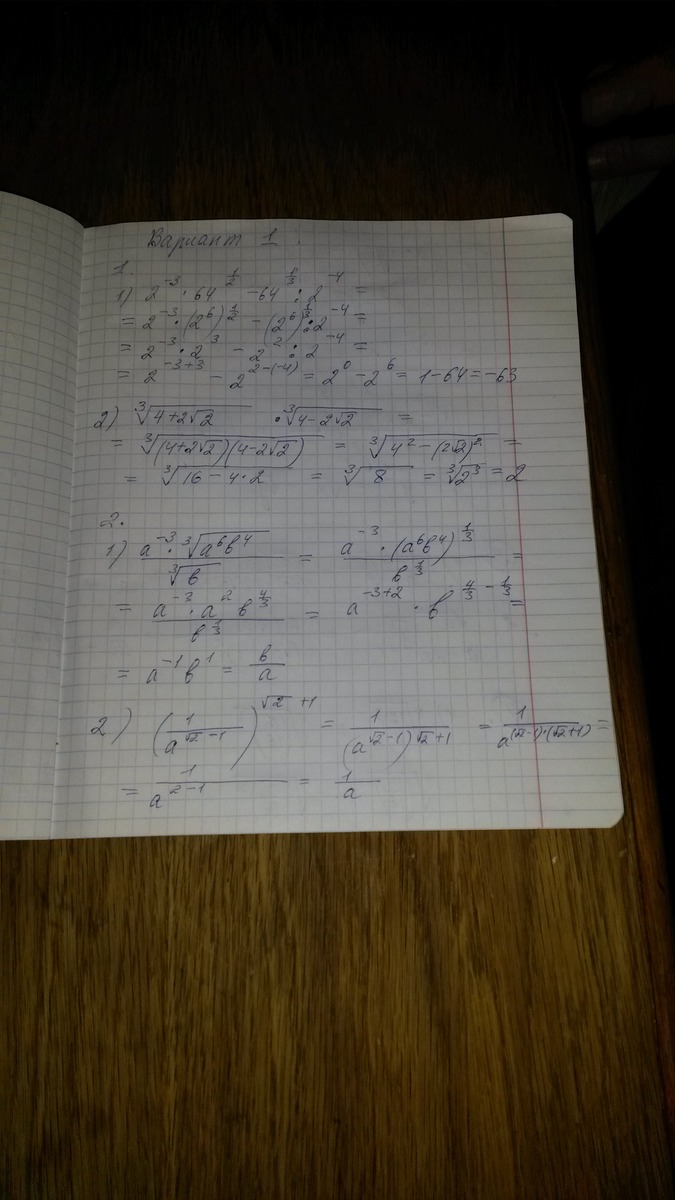 Вариант 1.
1.
1) 2^{-3} · 64^{1/2} - 64^{1/3} : 2^{-4} =
= 2^{-3} · (2^6)^{1/2} - (2^6)^{1/3} : 2^{-4} =
= 2^{-3} · 2^3 - 2^2 : 2^{-4} =
= 2^{-3+3} - 2^{2-(-4)} = 2^0 - 2^6 = 1 - 64 = -63
2) ∛(4+2√2) · ∛(4-2√2) =
= ∛((4+2√2)(4-2√2)) = ∛(4^2 - (2√2)^2) =
= ∛(16 - 4·2) = ∛8 = ∛(2^3) = 2
2.
1) (a^{-3} · ∛(a^6 b^4)) / ∛b = (a^{-3} · (a^6 b^4)^{1/3}) / b^{1/3} =
= (a^{-3} · a^2 b^{4/3}) / b^{1/3} = a^{-3+2} · b^{4/3 - 1/3} =
= a^{-1} b^1 = b/a
2) (1 / a^{√2-1})^{√2+1} = 1 / (a^{√2-1})^{√2+1} = 1 / a^{(√2-1)·(√2+1)} =
= 1 / a^{2-1} = 1/a